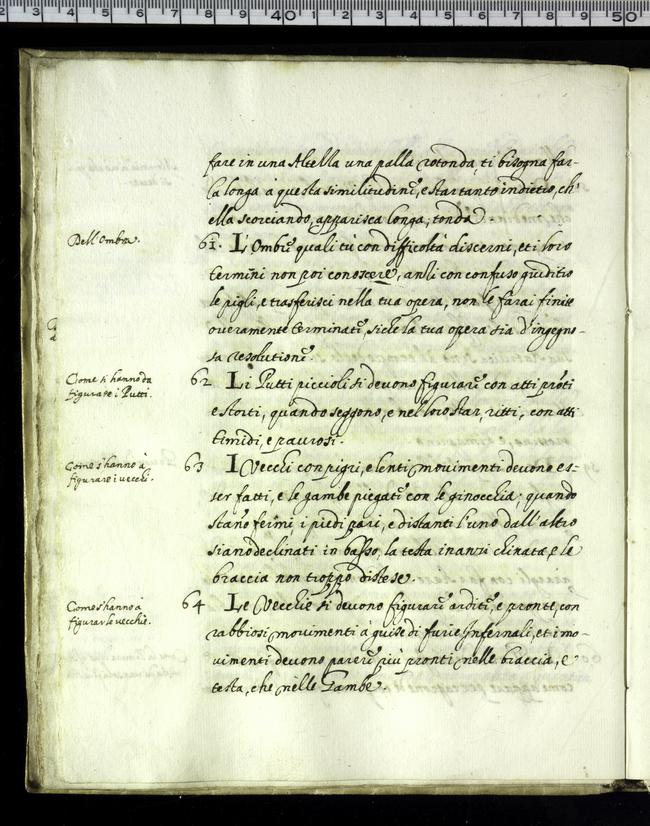 fare in una Altella una palla rotonda, ti bisogna far-
la longa à questa similitudine, e star tanto indietro, ch'
ella scorciando, apparisca longa, tonda.
Dell'Ombre.
61. L'Ombre quali tù con difficoltà discerni, et i loro
termini non poi conoscere, anzi con confuso giuditio
le pigli, e trasferisci nella tua opera, non le farai finite
overamente terminate, sichè la tua opera sia d'ingegno-
sa resolutione.
Come si hanno da
figurare i Putti.
62 Li Putti piccioli si devono figurare con atti pronti
e storti, quando seggono, e nel loro star, ritti, con atti
timidi, e paurosi.
Come s'hanno à
figurare i vecchi.
63 I Vecchi con pigri, e lenti movimenti devono es-
ser fatti, e le gambe piegate con le ginocchia; quando
stanno fermi i piedi pari, e distanti l'uno dall'altro
siano declinati in basso, la testa inanzi chinata, e le
braccia non troppo distese.
Come s'hanno à
figurar le vecchie.
64 Le Vecchie si devono figurare ardite, e pronte, con
rabbiosi movimenti à guisa di furie Infernali, et i mo-
vimenti devono parere più pronti nelle braccia, e
testa, che nelle Gambe.